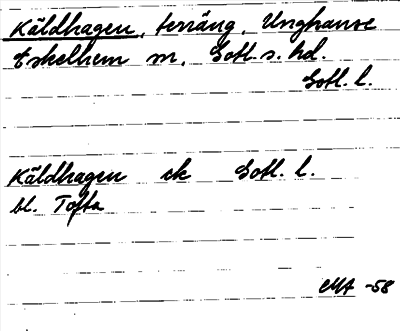 Käldhagen, terräng, Unghanse
Eskelhem sn, Gotl. s. hd.
Gotl. l.
Käldhagen ek Gotl. l.
bl. Tofta
MA -58